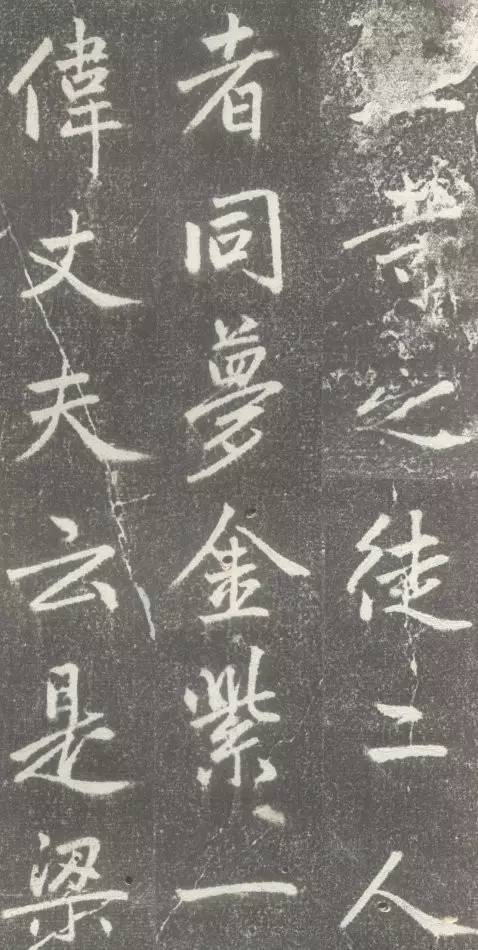 業之徒二人
者同夢金紫一
偉丈夫云是梁